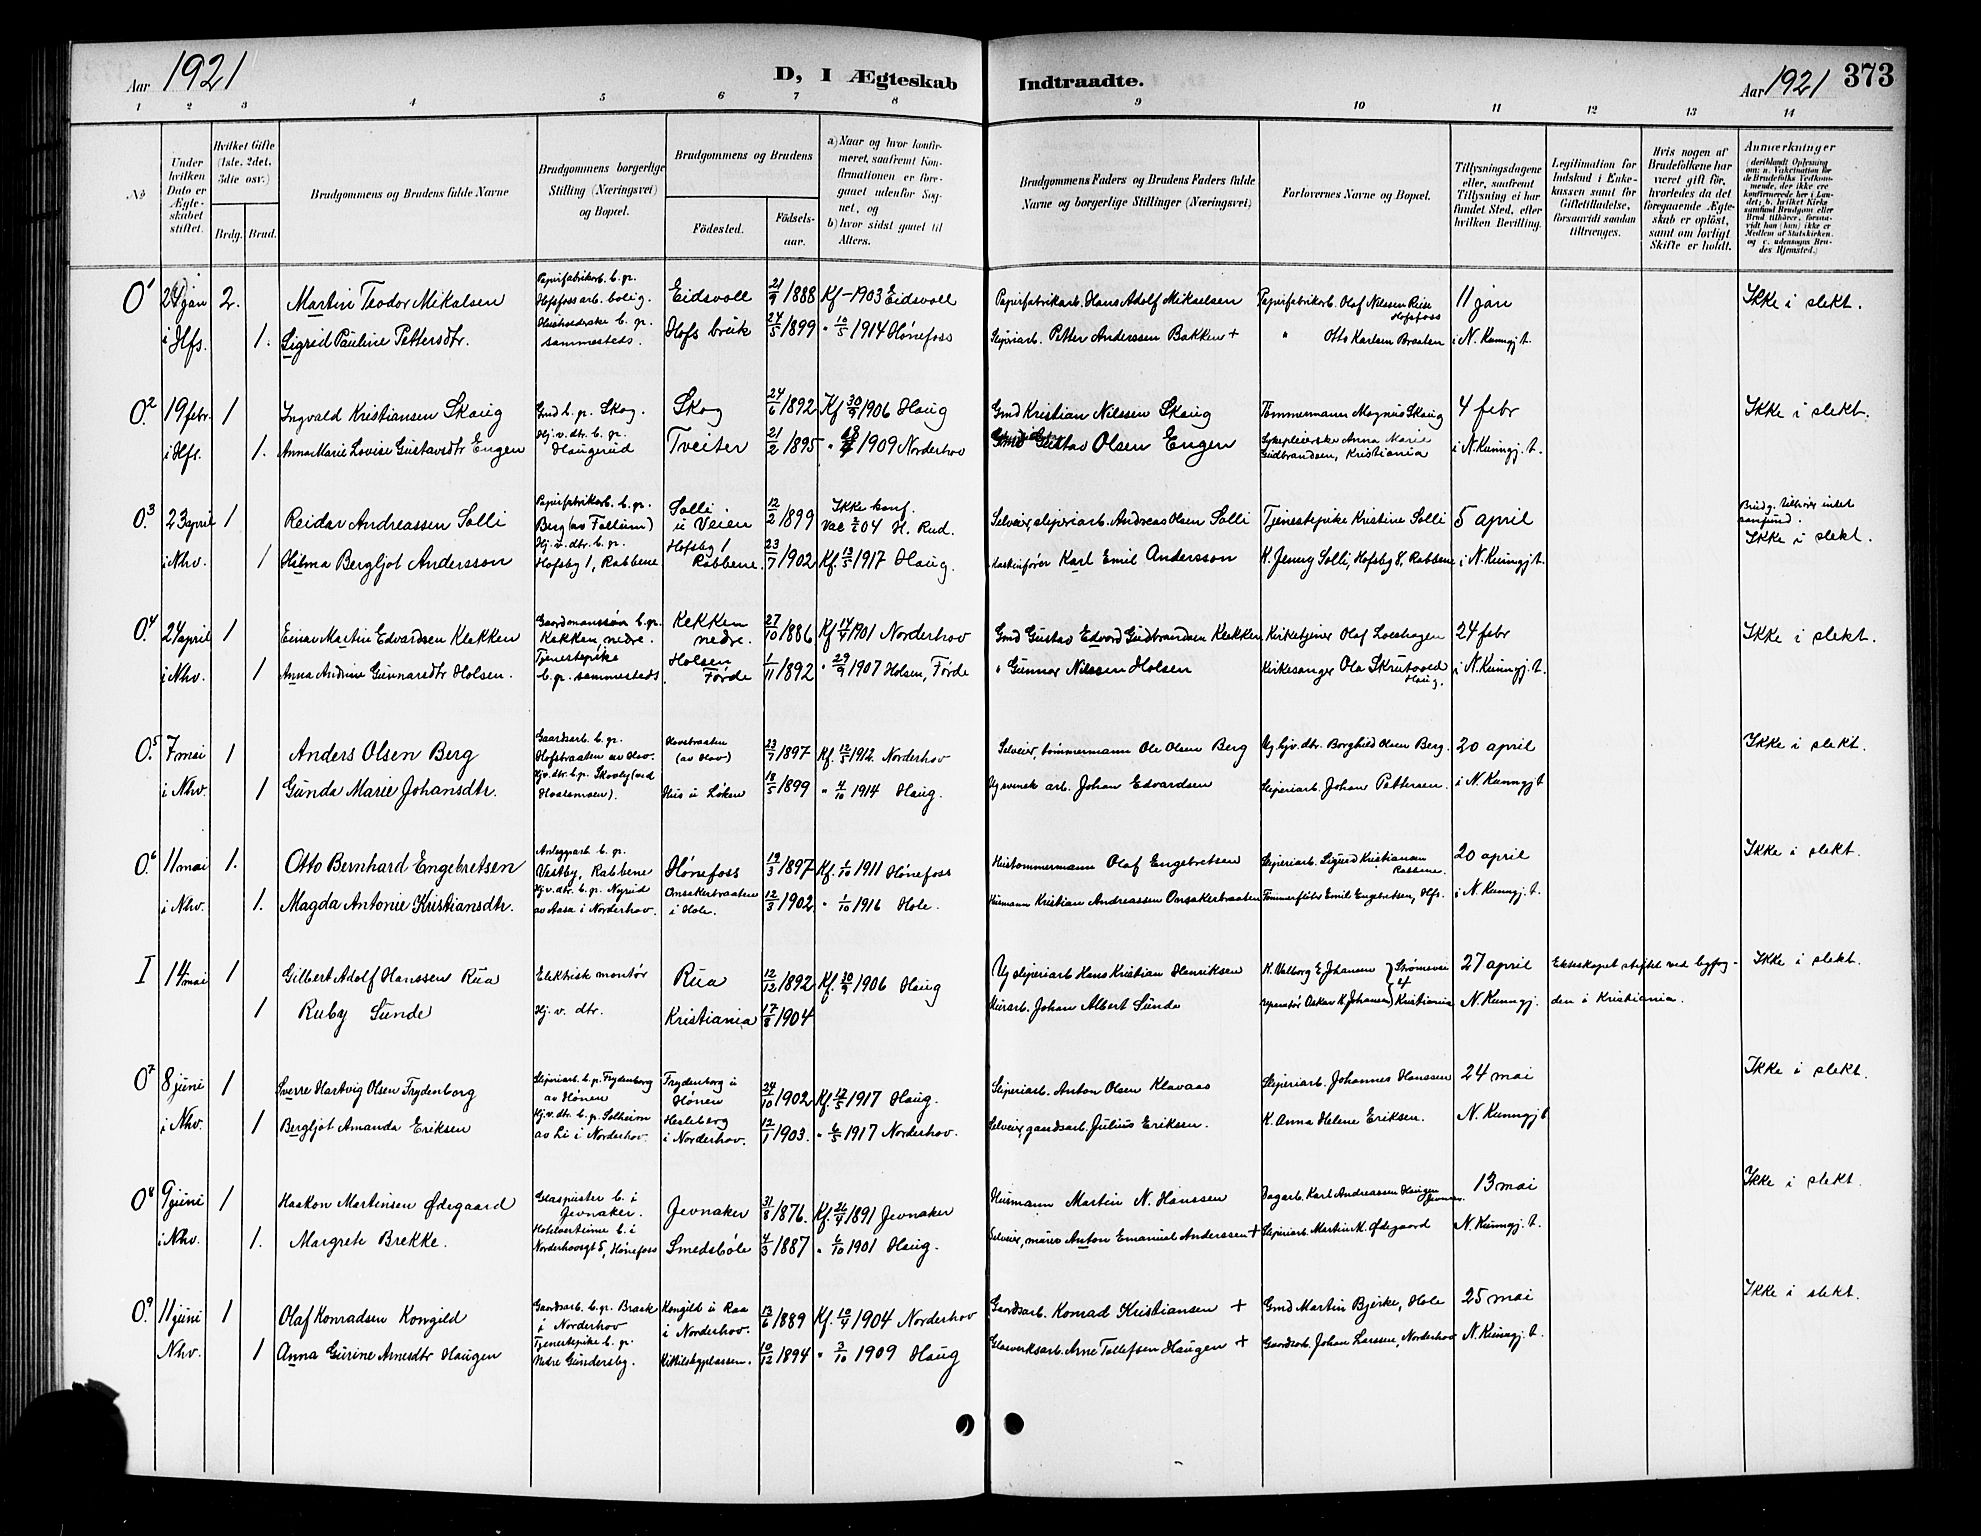 Aar 1921
D, I Ægteskab Indtraadte.
Aar 1921 373
1 2 3 4 5 6 7 8 9 10 11 12 13 14
№
Under hvilken Dato er Ægteskabet stiftet.
Hvilket Gifte (1ste, 2det, 3die osv.)
Brdg. Brud.
Brudgommens og Brudens fulde Navne
Brudgommens borgerlige Stilling (Næringsvei) og Bopæl.
Brudgommens og Brudens
Fødested. Fødsels-aar.
a) Naar og hvor konfirmeret, saafremt Konfirmationen er foregaaet udenfor Sognet, og
b) hvor sidst gaaet til Alters.
Brudgommens Faders og Brudens Faders fulde Navne og borgerlige Stillinger (Næringsvei)
Forlovernes Navne og Bopæl.
Tillysningsdagene eller, saafremt Tillysning ei har fundet Sted, efter hvilken Bevilling.
Legitimation for Indskud i Enkekassen samt for Giftetilladelse, forsaavidt saadan tiltrænges.
Hvis nogen af Brudefolkene har været gift før, hvorledes da det foregaaende Ægteskab er opløst, samt om lovligt Skifte er holdt.
Anmærkninger
(deriblandt Oplysning om: a. Vaccination for de Brudefolks Vedkommende, der ikke ere konfirmerede her i Landet; b. hvilket Kirkesamfund Brudgom eller Brud tilhører, forsaavidt han (hun) ikke er Medlem af Statskirken, og c. udensogns Brudes Hjemsted.)
O.1 24 jan 2. Martin Teodor Mikalsen Papirfabrikarb. b. pr. Hofsfoss arb. bolig. Eidsvoll 21/9 1888 Kf – 1903 Eidsvoll Papirfabrikarb. Hans Adolf Mikaelsen Papirfabrikarb. Olaf Nilssen Rise Hofsfoss 11 jan Ikke i slekt.
i Hfs. 1. Sigrid Pauline Pettersdtr. b. pr. sammesteds. Hofs bruk 24/5 1899 " 10/5 1914 Hønefoss Sliperiarb. Petter Anderssen Bakken + " Otto Karlsen Braaten i N. Kunngj.t.
O.2 19 febr. 1 Ingvald Kristiansen Skaug Gmd b. p. Skog. Skog 24/6 1892 Kf 30/9 1906 Haug Gmd Kristian Nilssen Skaug Tømmermann Magnus Skaug 4 febr Ikke i slekt.
i Hfs. 1. Anna Marie Lovise Gustavsdtr Engen Hj. v. dtr. b. pr. Haugerud Tveiter 21/2 1895 " 1909 Norderhov Gustav Olsen Engen Sykepleierske Anna Marie Gudbrandsen, Kristiania i N. Kunngj. t.
O.3 23 april 1 Reidar Andreassen Solli Papirfabrikarb. b. pr. Berg (av Follum) Solli u Veien 12/2 1899 Ikke konf. Vac 04 H. Rud. Selveier, sliperiarb. Andreas Olsen Solli Tjenestepike Kristine Solli 5 april Brudg. tilhører intet samfund. Ikke i slekt.
i Nhv. 1 Hilma Bergljot Andersson Hj. v. dtr. b. pr. Hofsby 1, Rabbene Hofsby 1 Rabbene. 23/7 1902 Kf. 13/5 1917 Haug. Maskinfører Karl Emil Andersson K. Jenny Solli, Hofsby 8, Rabbene i N. Kunngj.t.
O.4 24 april 1 Einar Martin Edvardsen Klekken Gaardmannssøn b. pr. Kekken nedre. Kekken nedre. 27/10 1886 Kf 14/4 1901 Norderhov Gmd Gustav Edvard Gudbrandsen Klekken Kirketjener Olaf Loeshagen 24 febr Ikke i slekt.
i Nhv. 1 Anna Andrine Gunnarsdtr Holsen. Tjenestepike b. pr. sammesteds Holsen Førde 1/11 1892 " 29/9 1907 Holsen, Førde " Gunnar Nilssen Holsen Kirkesanger Ola Skrutvold Haug. i N. Kunngj. t.
O.5 7 mai 1 Anders Olsen Berg Gaardsarb. b. pr. Hofsbraaten av Hov. Hovsbraaten (av Hov) 23/7 1897 Kf. 12/5 1912. Norderhov Selveier, tømmermann Ole Olsen Berg Ug. hjv. dtr. Borghild Olsen Berg. 20 april Ikke i slekt.
i Nhv. 1 Gunda Marie Johansdtr. Hj. v. dtr. b. pr. Skovly (ved Hvalsmoen). Hus u Løken 18/5 1899 " 4/10 1914 Haug. Ug svensk arb. Johan Edvardsen Sliperiarb. Johan Pettersen. i N. Kunngj.t
O.6 11 mai 1. Otto Bernhard Engebretsen Anleggsarb. b. pr. Vestby, Rabbene Hønefoss 19/3 1897 Kf. 1/10 1911 Hønefoss Hustømmermann Olaf Engebretsen Sliperiarb. Sigurd Kristiansen Rabbene. 20 april Ikke i slekt.
i Nhv. 1. Magda Antonie Kristiansdtr. Hj. v. dtr. b. pr. Nyrud av Aasa i Norderhov. Onsakerbraaten i Hole. 12/3 1902 " 1/10 1916 Hole. Husmann Kristian Andreassen Onsakerbraaten Tømmerfløter Emil Engebretsen, Hfs. i N. Kunngj. t.
I 14 mai 1 Gilbert Adolf Hanssen Rua Elektrisk montør Rua 12/12 1892 Kf. 30/9 1906 Haug Ug sliperiarb Hans Kristian Henriksen K. Valborg E. Johansen } Strømsvei 4 27 april Ekteskapet stiftet ved byfog- Ikke i slekt.
1 Ruby Sunde Hj. v. dtr. Kristiania 17/8 1904 Murarb. Johan Albert Sunde reparatør Oskar K. Johansen } Kristiania N. Kunngj. den i Kristiania.
O.7 8 juni 1 Sverre Hartvig Olsen Frydenborg Sliperiarb. b. pr. Frydenborg av Hønen Frydenborg u Hønen 24/10 1902 Kf. 13/5 1917 Haug. Sliperiarb. Anton Olsen Klavaas Sliperiarb. Johannes Hanssen 24 mai Ikke i slekt.
i Nhv. 1 Bergljot Amanda Eriksen Hj. v. dtr. b. pr. Solheim av Li i Norderhov. Hesleberg i Norderhov. 12/1 1903. " 6/5 1917 Norderhov. Selveier, gaardsarb. Julius Eriksen. K. Anna Helene Eriksen. N. Kunngj t
O.8 9 juni 1 Haakon Martinsen Ødegaard Glaspuster b. i Jevnaker. Jevnaker 31/8 1876. Kf. 1891 Jevnaker Husmann Martin N. Hanssen Dagarb. Karl Andreassen Haugen 13 mai Ikke i slekt.
i Nhv. 1. Margrete Brekke. b. i Norderhovsgt 5, Hønefoss Smedsbøle 4/3 1887 " 6/10 1901 Haug. Selveier, murer Anton Emanuel Anderssen + Sliperiarb. Martin M. Ødegaard N. Kunngj. t.
O.9 11 juni 1 Olaf Konradsen Kongild Gaardsarb. b. pr. Braak i Norderhov Kongild u Raa i Norderhov. 13/6 1889 Kf. 10/4 1904 Norderhov Gaardsarb. Konrad Kristiansen + Gmd Martin Bjerke, Hole 25 mai Ikke i slekt.
Nhv. 1 Anna Gurine Arnesdtr Haugen Tjenestepike b. pr. Nedre Gundersby. Kittilsbyplassen. 10/12 1894 " 3/10 1909 Haug Glasverksarb. Arne Tollefsen Haugen + Gaardsarb. Johan Larssen, Norderhov N. Kunngj. t.